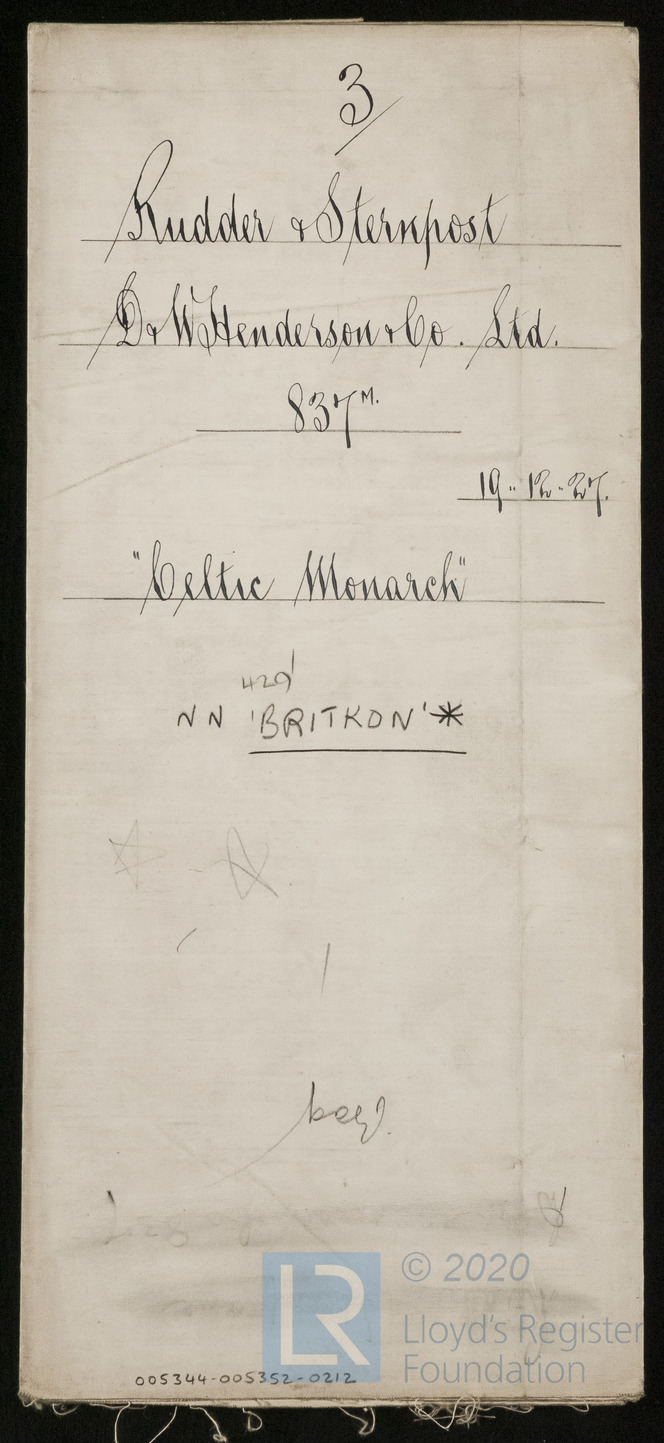 3/
Rudder & Sternpost
D & W Henderson & Co. Ltd.
837 M.
19-12-27.
"Celtic Monarch"
429'
NN 'BRITKON'*
LR
© 2020
Lloyd's Register
Foundation
005344-005352-0212